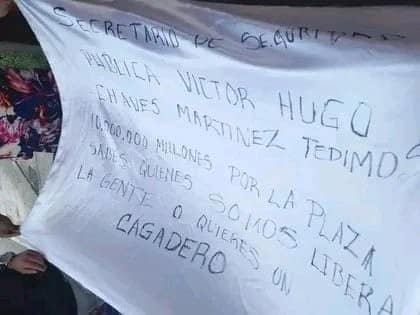 SECRETARIO DE SEGURIDAD
PUBLICA VICTOR HUGO
CHAVES MARTINEZ TEDIMOS
10,000.000 MILLONES POR LA PLAZA
SABES QUIENES SOMOS LIBERA
LA GENTE O QUIERES UN
CAGADERO